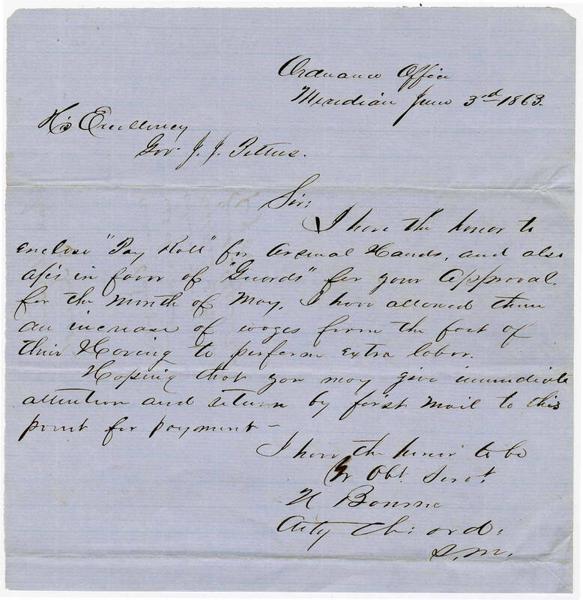 Ordnance Office
Meridian June 3rd 1863.
His Excellency
Gov. J. J. Pettus.
Sir:
I have the honor to
enclose "Pay Roll" for Arsenal Hands, and also
a/c's in favor of "Guards" for your approval.
for the month of May, I have allowed them
an increase of wages from the fact of
their Having to perform extra labor.
Hoping that you may give immediate
attention and return by first mail to this
point for payment —
I have the honor to be
Yr Obt. Servt
Bourne
Actg Ch: ord:
S. M.